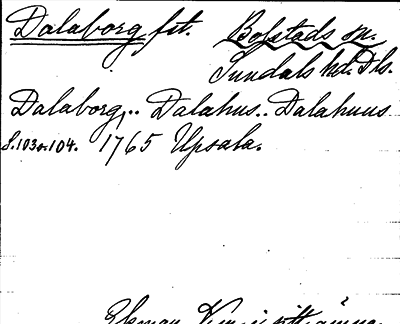 Dalaborg frt. Bolstads sn.
Sundals hd. Dls.
Dalaborg,.. Dalahus.. Dalahuus
S. 103 o. 104. 1765 Upsala.
Ekman